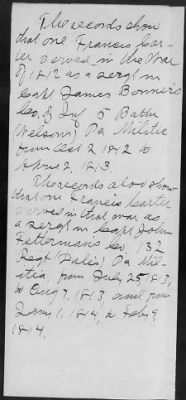 The records show
that one Francis Car-
ter served in the War
of 1812 as a serg't in
Capt James Bonner's
Co. of Inf 5 Battn
(Nelson's) Pa Militia
from Oct 2 1812 to
April 2, 1813.
The records also show
that one Francis Carter
served in that war as
a serg't in Capt John
Fetterman's Co, 132
Regt (Dale's) Pa Mil-
itia from July 25 1813,
to Aug 7, 1813, and from
Jany 1, 1814, to Feby 9
1814.